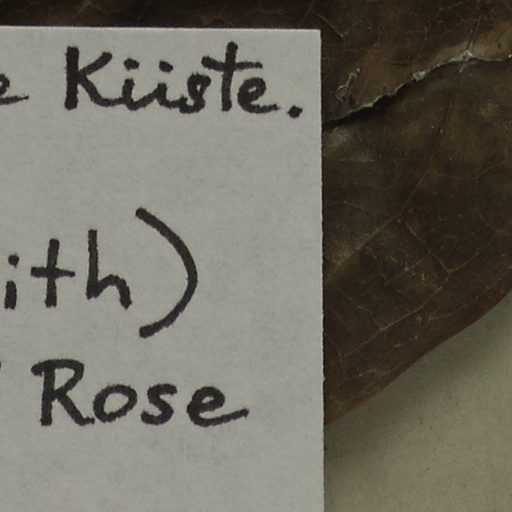 e Küste.
ith)
Rose